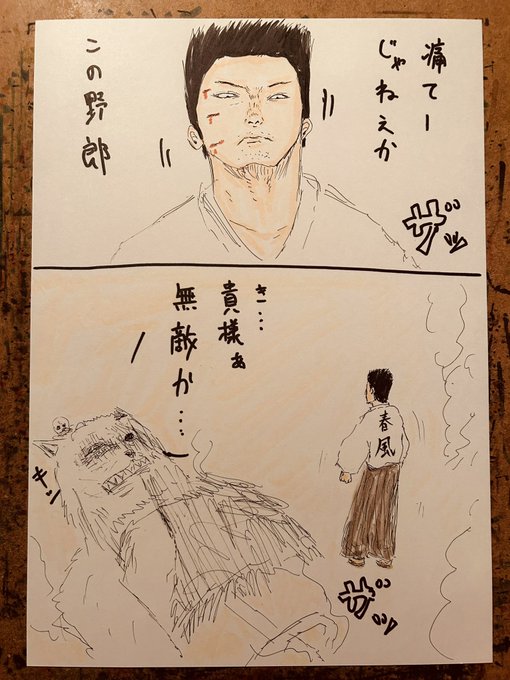 痛てー
じゃねえか
この野郎
ザッ
き…
貴様ぁ
無敵か…
春風
ザッ